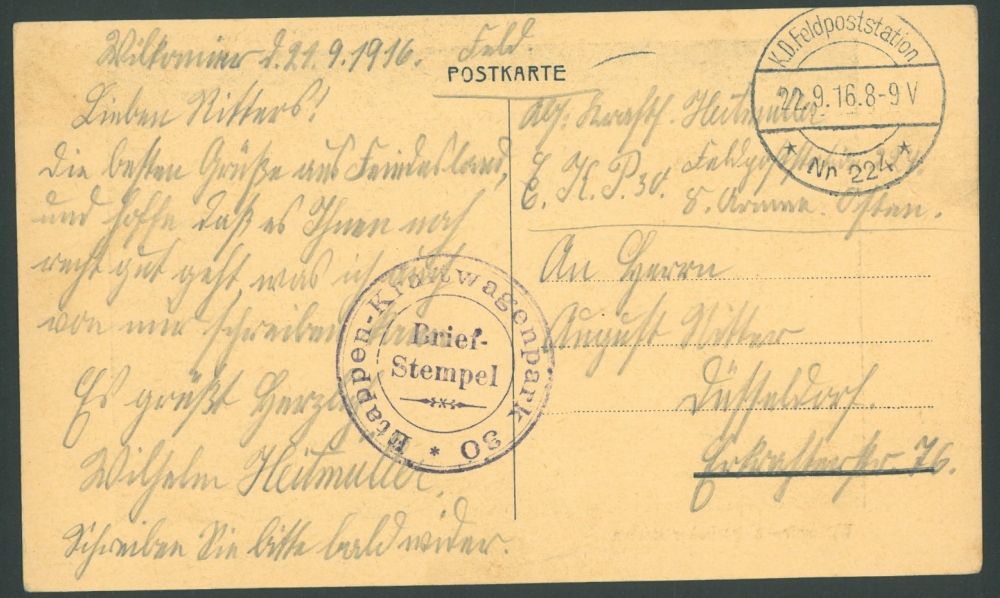 Wilkomier d. 21.9.1916.
Lieben Ritters!
Die besten Grüße aus Feindesland,
und hoffe daß es Ihnen noch
recht gut geht, was ich auch
von mir schreiben kann
Es grüßt Herzl.
Wilhelm Heitmüller.
Schreiben Sie bitte bald wider.
Feld.
POSTKARTE
Abs: Kraftf. Heitmüller
E. K. P. 30. Feldpoststation 224.
8. Armee. Osten.
An Herrn
August Ritter
Düsseldorf.
Erkratherstr. 76.
K.D. Feldpoststation
22.9.16.8-9V
* Nr. 224 *
Etappen-Kraftwagenpark 30 *
Brief-
Stempel